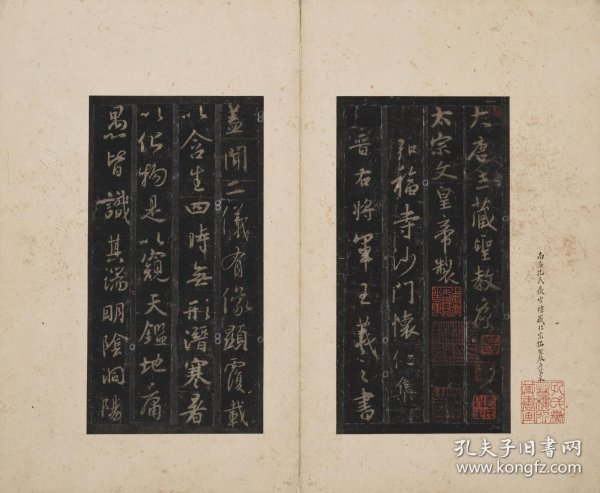 大唐三藏聖教序
太宗文皇帝製
弘福寺沙門懷仁集
晉右將軍王羲之書
蓋聞二儀有像顯覆載
以含生四時無形潛寒暑
以化物是以窺天鑑地庸
愚皆識其端明陰洞陽
南海孔氏嶽雪樓藏北宋拓聖教序
孔夫子旧书网
www.kongfz.com